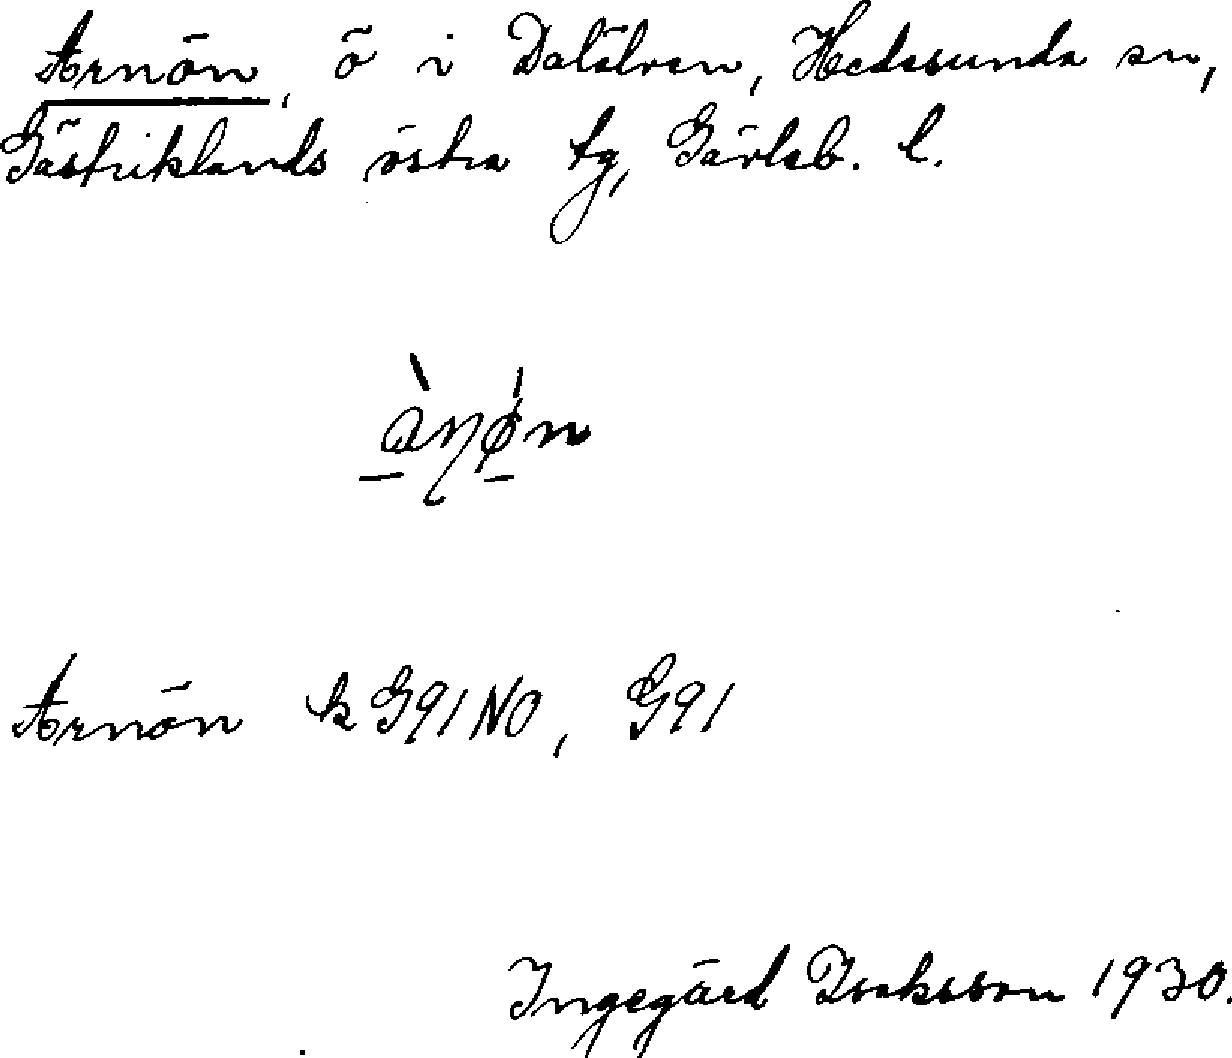 Arnön, ö i Dalälven, Hedesunda sn,
Gästriklands östra tg, Gävleb. l.
Arnön k G91NO, G91
Ingegärd Isaksson 1930.